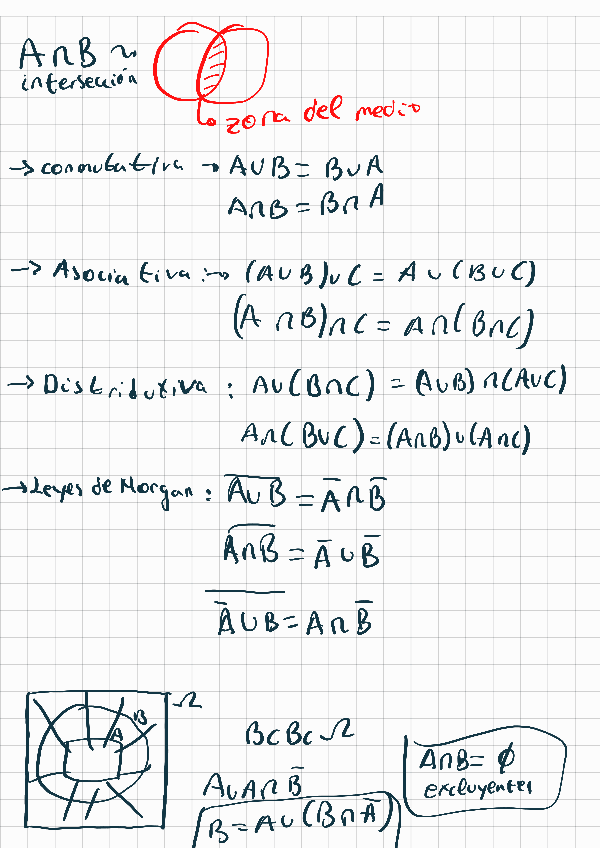 A∩B ~
intersección
zona del medio
→ conmutativa → A∪B = B∪A
A∩B = B∩A
→ Asociativa :→ (A∪B)∪C = A∪(B∪C)
(A∩B)∩C = A∩(B∩C)
→ Distributiva : A∪(B∩C) = (A∪B)∩(A∪C)
A∩(B∪C) = (A∩B)∪(A∩C)
→ Leyes de Morgan : A̅∪̅B̅ = A̅∩B̅
A̅∩̅B̅ = A̅∪B̅
A̅̅∪̅B̅ = A∩B̅
Ω
B
A
B⊂B⊂Ω
A∪A∩B̅
B = A∪(B∩A̅)
A∩B = ∅
excluyentes